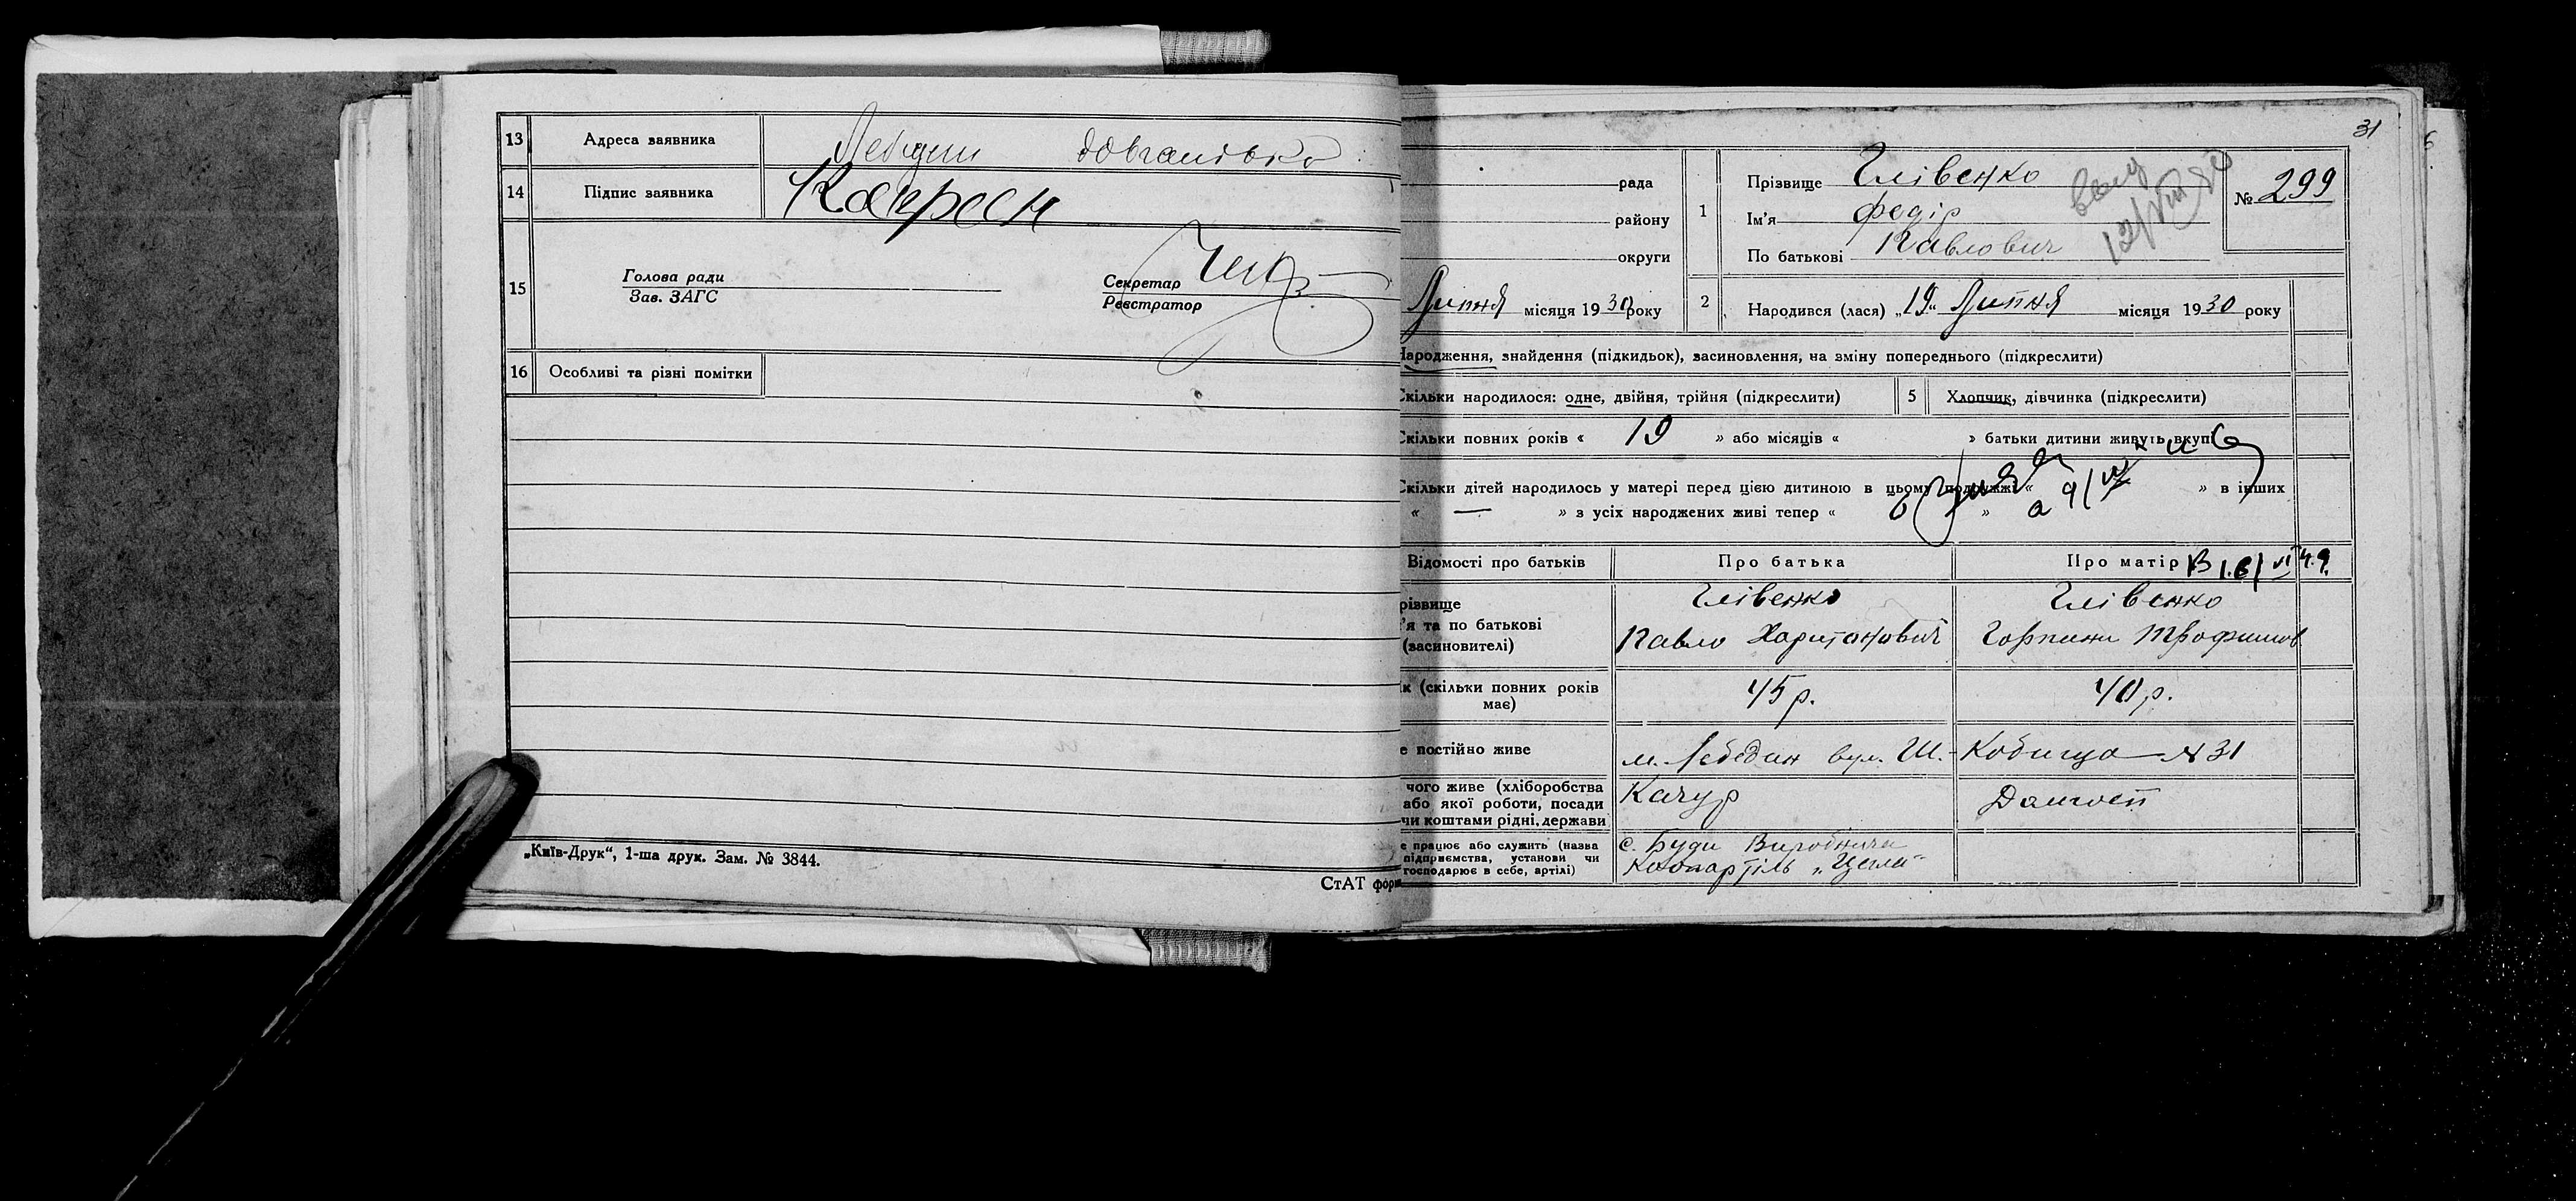 13 Адреса заявника Лебедин
14 Підпис заявника
15 Голова ради
Зав. ЗАГС
Секретар
Реєстратор
16 Особливі та різні помітки
„Київ-Друк“, 1-ша друк. Зам. № 3844.
СтАТ фор
31
рада
району
округи
Липня місяця 1930 року
1 Прізвище Глівенко
Ім'я Федір
По батькові Павлович
№ 299
2 Народився (лася) „19“ Липня місяця 1930 року
Народження, знайдення (підкидьок), засиновлення, на зміну попереднього (підкреслити)
Скільки народилося: одне, двійня, трійня (підкреслити) 5 Хлопчик, дівчинка (підкреслити)
Скільки повних років « 19 » або місяців « » батьки дитини живуть вкупі
Скільки дітей народилось у матері перед цією дитиною в цьому подружжі « » в інших
« — » з усіх народжених живі тепер « 6 »
Відомості про батьків Про батька Про матір
різвище Глівенко Глівенко
'я та по батькові
(засиновителі) Павло Харитонович Горпина Трофимов
ік (скільки повних років
має) 45 р. 40 р.
е постійно живе м. Лебедин вул. Ш.-Кобища № 31
чого живе (хліборобства
або якої роботи, посади
чи коштами рідні, держави Качур
е працює або служить (назва
підприємства, установи чи
господарює в себе, артілі) с. Буди Виробнича
Коопартіль